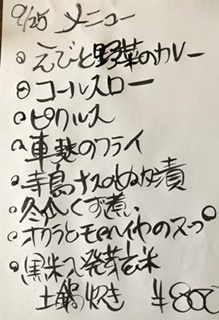 9/25 メニュー
◎えびと野菜のカレー
◎コールスロー
◎ピクルス
◎車麩のフライ
◎寺島ナスのぬか漬
◎冬瓜くず煮
◎オクラとモロヘイヤのスープ
◎黒米入発芽玄米
土鍋炊き ¥800